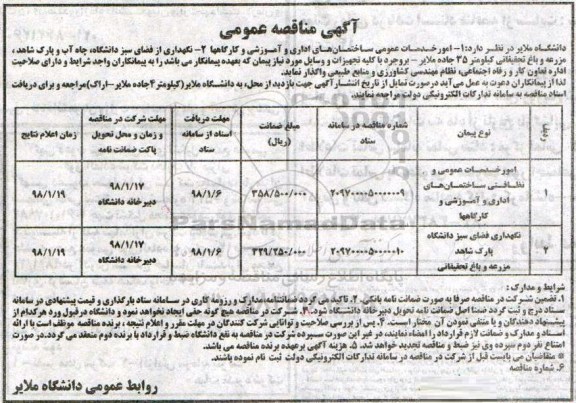 آگهی مناقصه عمومی
دانشگاه ملایر در نظر دارد: ۱- امور خدمات عمومی ساختمان‌های اداری و آموزشی و کارگاهها ۲- نگهداری از فضای سبز دانشگاه، چاه آب و پارک شاهد،
مزرعه و باغ تحقیقاتی کیلومتر ۳۵ جاده ملایر – بروجرد با کلیه تجهیزات و وسایل مورد نیاز پیمان که بعهده پیمانکار می باشد را به پیمانکاران واجد شرایط و دارای صلاحیت
اداره تعاون کار و رفاه اجتماعی، نظام مهندسی کشاورزی و منابع طبیعی واگذار نماید.
لذا از پیمانکاران دعوت به عمل می‌آید در صورت تمایل از تاریخ انتشار آگهی جهت بازدید از محل، به دانشگاه ملایر (کیلومتر ۴ جاده ملایر –اراک) مراجعه و برای دریافت
اسناد مناقصه به سامانه تدارکات الکترونیکی دولت مراجعه نمایند.
ردیف | نوع پیمان | شماره مناقصه در سامانه ستاد | مبلغ ضمانت (ریال) | مهلت دریافت اسناد از سامانه ستاد | مهلت شرکت در مناقصه و زمان و محل تحویل پاکت ضمانت نامه | زمان اعلام نتایج
۱ | امور خدمات عمومی و نظافتی ساختمان‌های اداری و آموزشی و کارگاهها | ۲۰۹۷۰۰۰۰۵۰۰۰۰۰۰۹ | ۳۵۸/۵۰۰/۰۰۰ | ۹۸/۱/۶ | ۹۸/۱/۱۷ دبیرخانه دانشگاه | ۹۸/۱/۱۹
۲ | نگهداری فضای سبز دانشگاه پارک شاهد مزرعه و باغ تحقیقاتی | ۲۰۹۷۰۰۰۰۵۰۰۰۰۱۰ | ۳۳۹/۲۵۰/۰۰۰ | ۹۸/۱/۶ | ۹۸/۱/۱۷ دبیرخانه دانشگاه | ۹۸/۱/۱۹
ParsNamadData
شرایط و مدارک :
۱. تضمین شرکت در مناقصه صرفا به صورت ضمانت نامه بانکی. ۲. تاکید می گردد ضمانتنامه، مدارک و رزومه کاری در سامانه ستاد بارگذاری و قیمت پیشنهادی در سامانه
ستاد درج و ثبت گردد ضمنا اصل ضمانت نامه تحویل دبیرخانه دانشگاه شود. ۳. شرکت در مناقصه هیچ گونه حقی ایجاد نخواهد نمود و دانشگاه در قبول ورد هر کدام از
پیشنهاد دهندگان و یا منتفی نمودن آن مختار است. ۴. پس از بررسی صلاحیت و توانایی شرکت کنندگان در مهلت مقرر و اعلام نتیجه، برنده مناقصه موظف است با ارائه
اسناد و مدارک و ضمانت لازم قرارداد را امضاء نمایند، در غیر این صورت سپرده شرکت در مناقصه به نفع دانشگاه ضبط و قرارداد با برنده دوم منعقد می گردد. در صورت
امتناع نفر دوم سپرده وی نیز ضبط و مناقصه تجدید خواهد شد. ۵. هزینه آگهی بر عهده برنده مناقصه می باشد.
* متقاضیان می بایست قبل از شرکت در مناقصه در سامانه تدارکات الکترونیکی دولت ثبت نام نموده باشند.
۶. شماره مناقصه
روابط عمومی دانشگاه ملایر